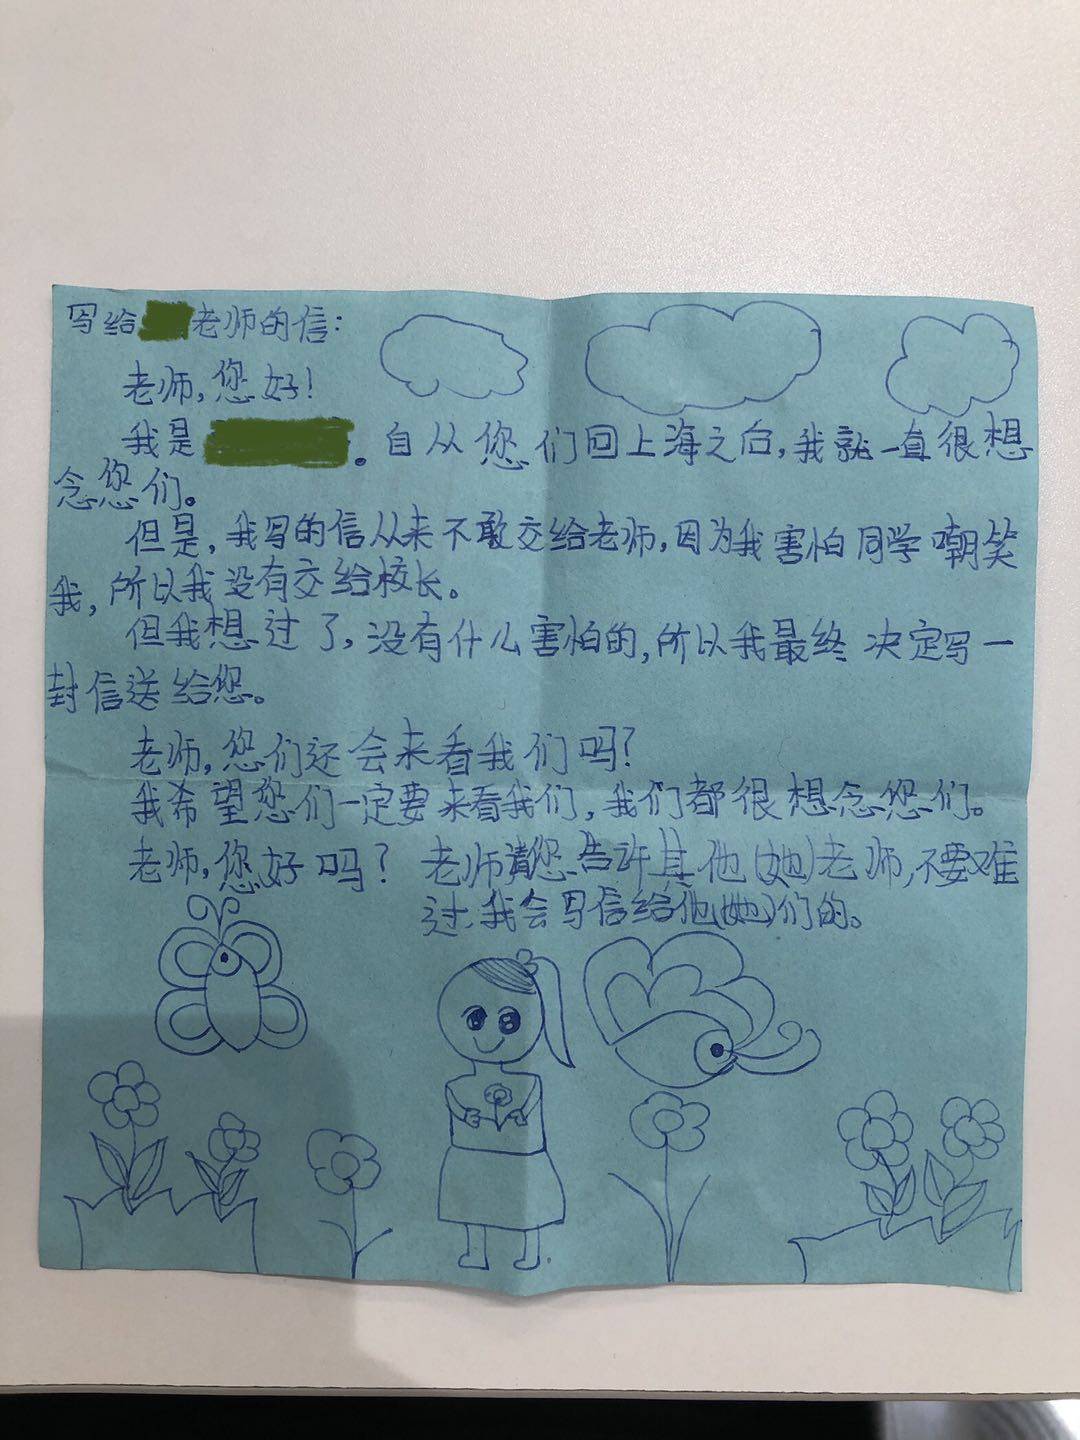 写给老师的信:
老师,您好!
我是。自从您们回上海之后,我就一直很想
念您们。
但是,我写的信从来不敢交给老师,因为我害怕同学嘲笑
我,所以我没有交给校长。
但我想过了,没有什么害怕的,所以我最终决定写一
封信送给您。
老师,您们还会来看我们吗?
我希望您们一定要来看我们,我们都很想念您们。
老师,您好吗? 老师请您告许其他(她)老师,不要难
过,我会写信给他(她)们的。